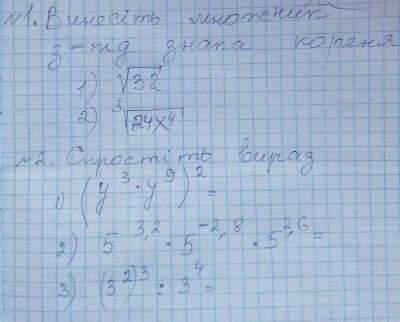 №1. Винесіть множник
з-під знака кореня
1) √32
2) ³√24x⁴
№2. Спростіть вираз
1) (y³·y⁹)²=
2) 5^3,2 · 5^-2,8 · 5^2,6=
3) (3²)³ : 3⁴=